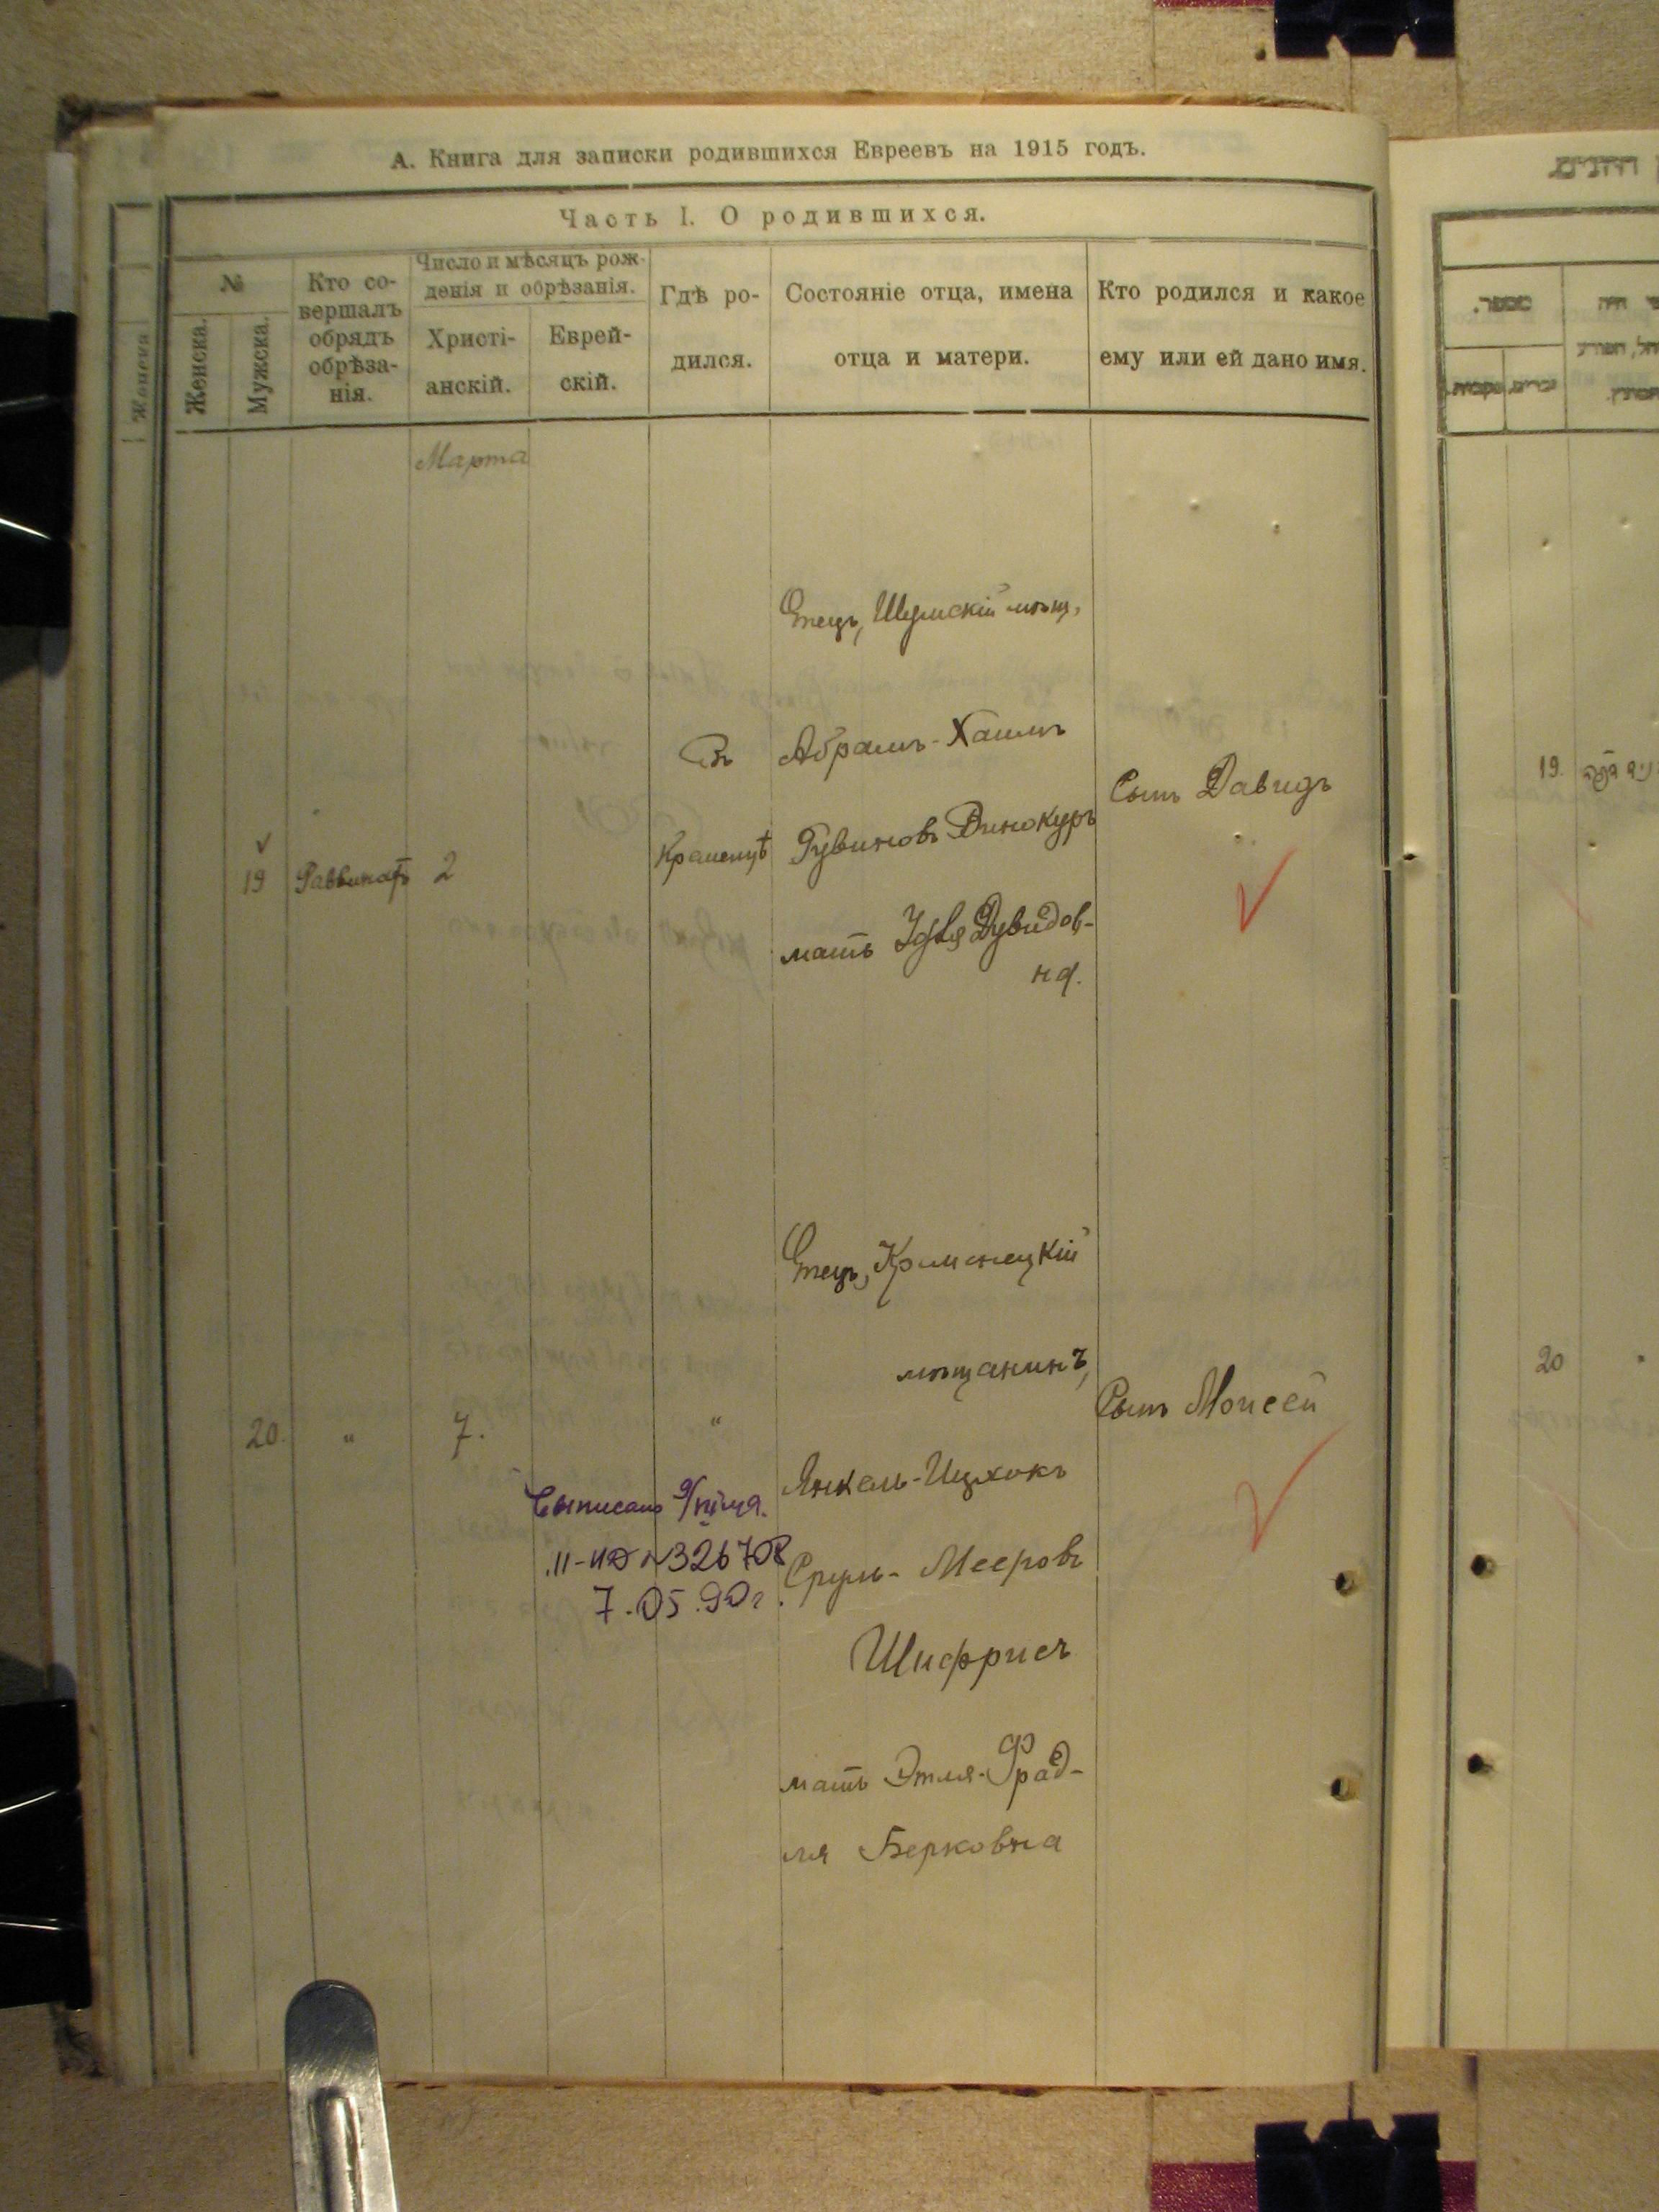 А. Книга для записки родившихся Евреевъ на 1915 годъ.
Часть I. О родившихся.
№
Женска.
Мужска.
Кто со-
вершалъ
обрядъ
обрѣза-
нія.
Число и мѣсяцъ рож-
денія и обрѣзанія.
Христі-
анскій.
Еврей-
скій.
Гдѣ ро-
дился.
Состояніе отца, имена
отца и матери.
Кто родился и какое
ему или ей дано имя.
Марта
19
2
Въ
Отецъ, Шумскій мѣщ,
Абрамъ-Хаимъ
Рувиновъ Винокуръ
мать Идля Дувидов-
на.
Сынъ Давидъ
20.
"
7.
"
Отецъ, Кременецкій
мѣщанинъ,
Янкель-Ицхокъ
Сруль-Мееровъ
Шифрисъ
мать Этля-Фрад-
ля Берковна
Сынъ Моисей
Выписано
II-ИД №326708
7.05.90г.
Женска
מספר.
19.
20